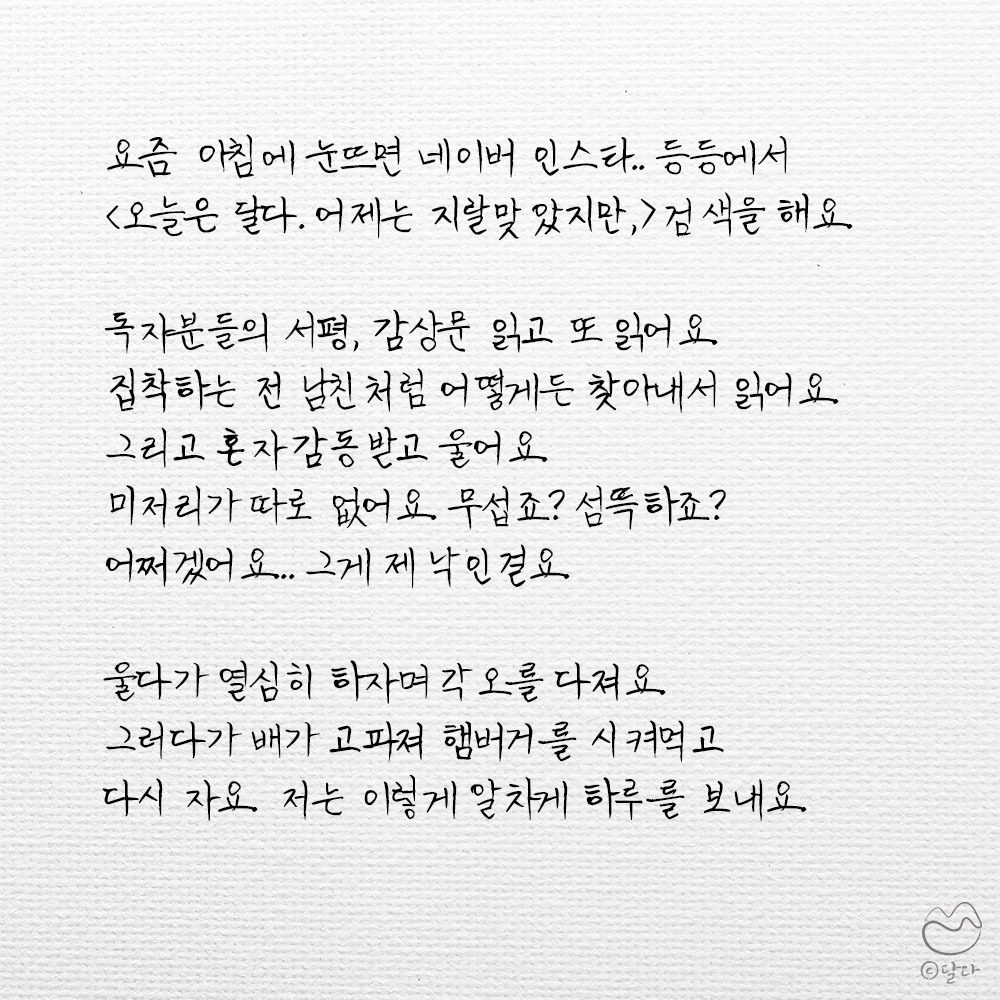 요즘 아침에 눈뜨면 네이버 인스타.. 등등에서
<오늘은 달다. 어제는 지랄맞았지만,> 검색을 해요.
독자분들의 서평, 감상문 읽고 또 읽어요.
집착하는 전 남친처럼 어떻게든 찾아내서 읽어요.
그리고 혼자 감동받고 울어요.
미저리가 따로 없어요. 무섭죠? 섬뜩하죠?
어쩌겠어요... 그게 제 낙인걸요.
울다가 열심히 하자며 각오를 다져요.
그러다가 배가 고파져 햄버거를 시켜먹고
다시 자요. 저는 이렇게 알차게 하루를 보내요.
©달다